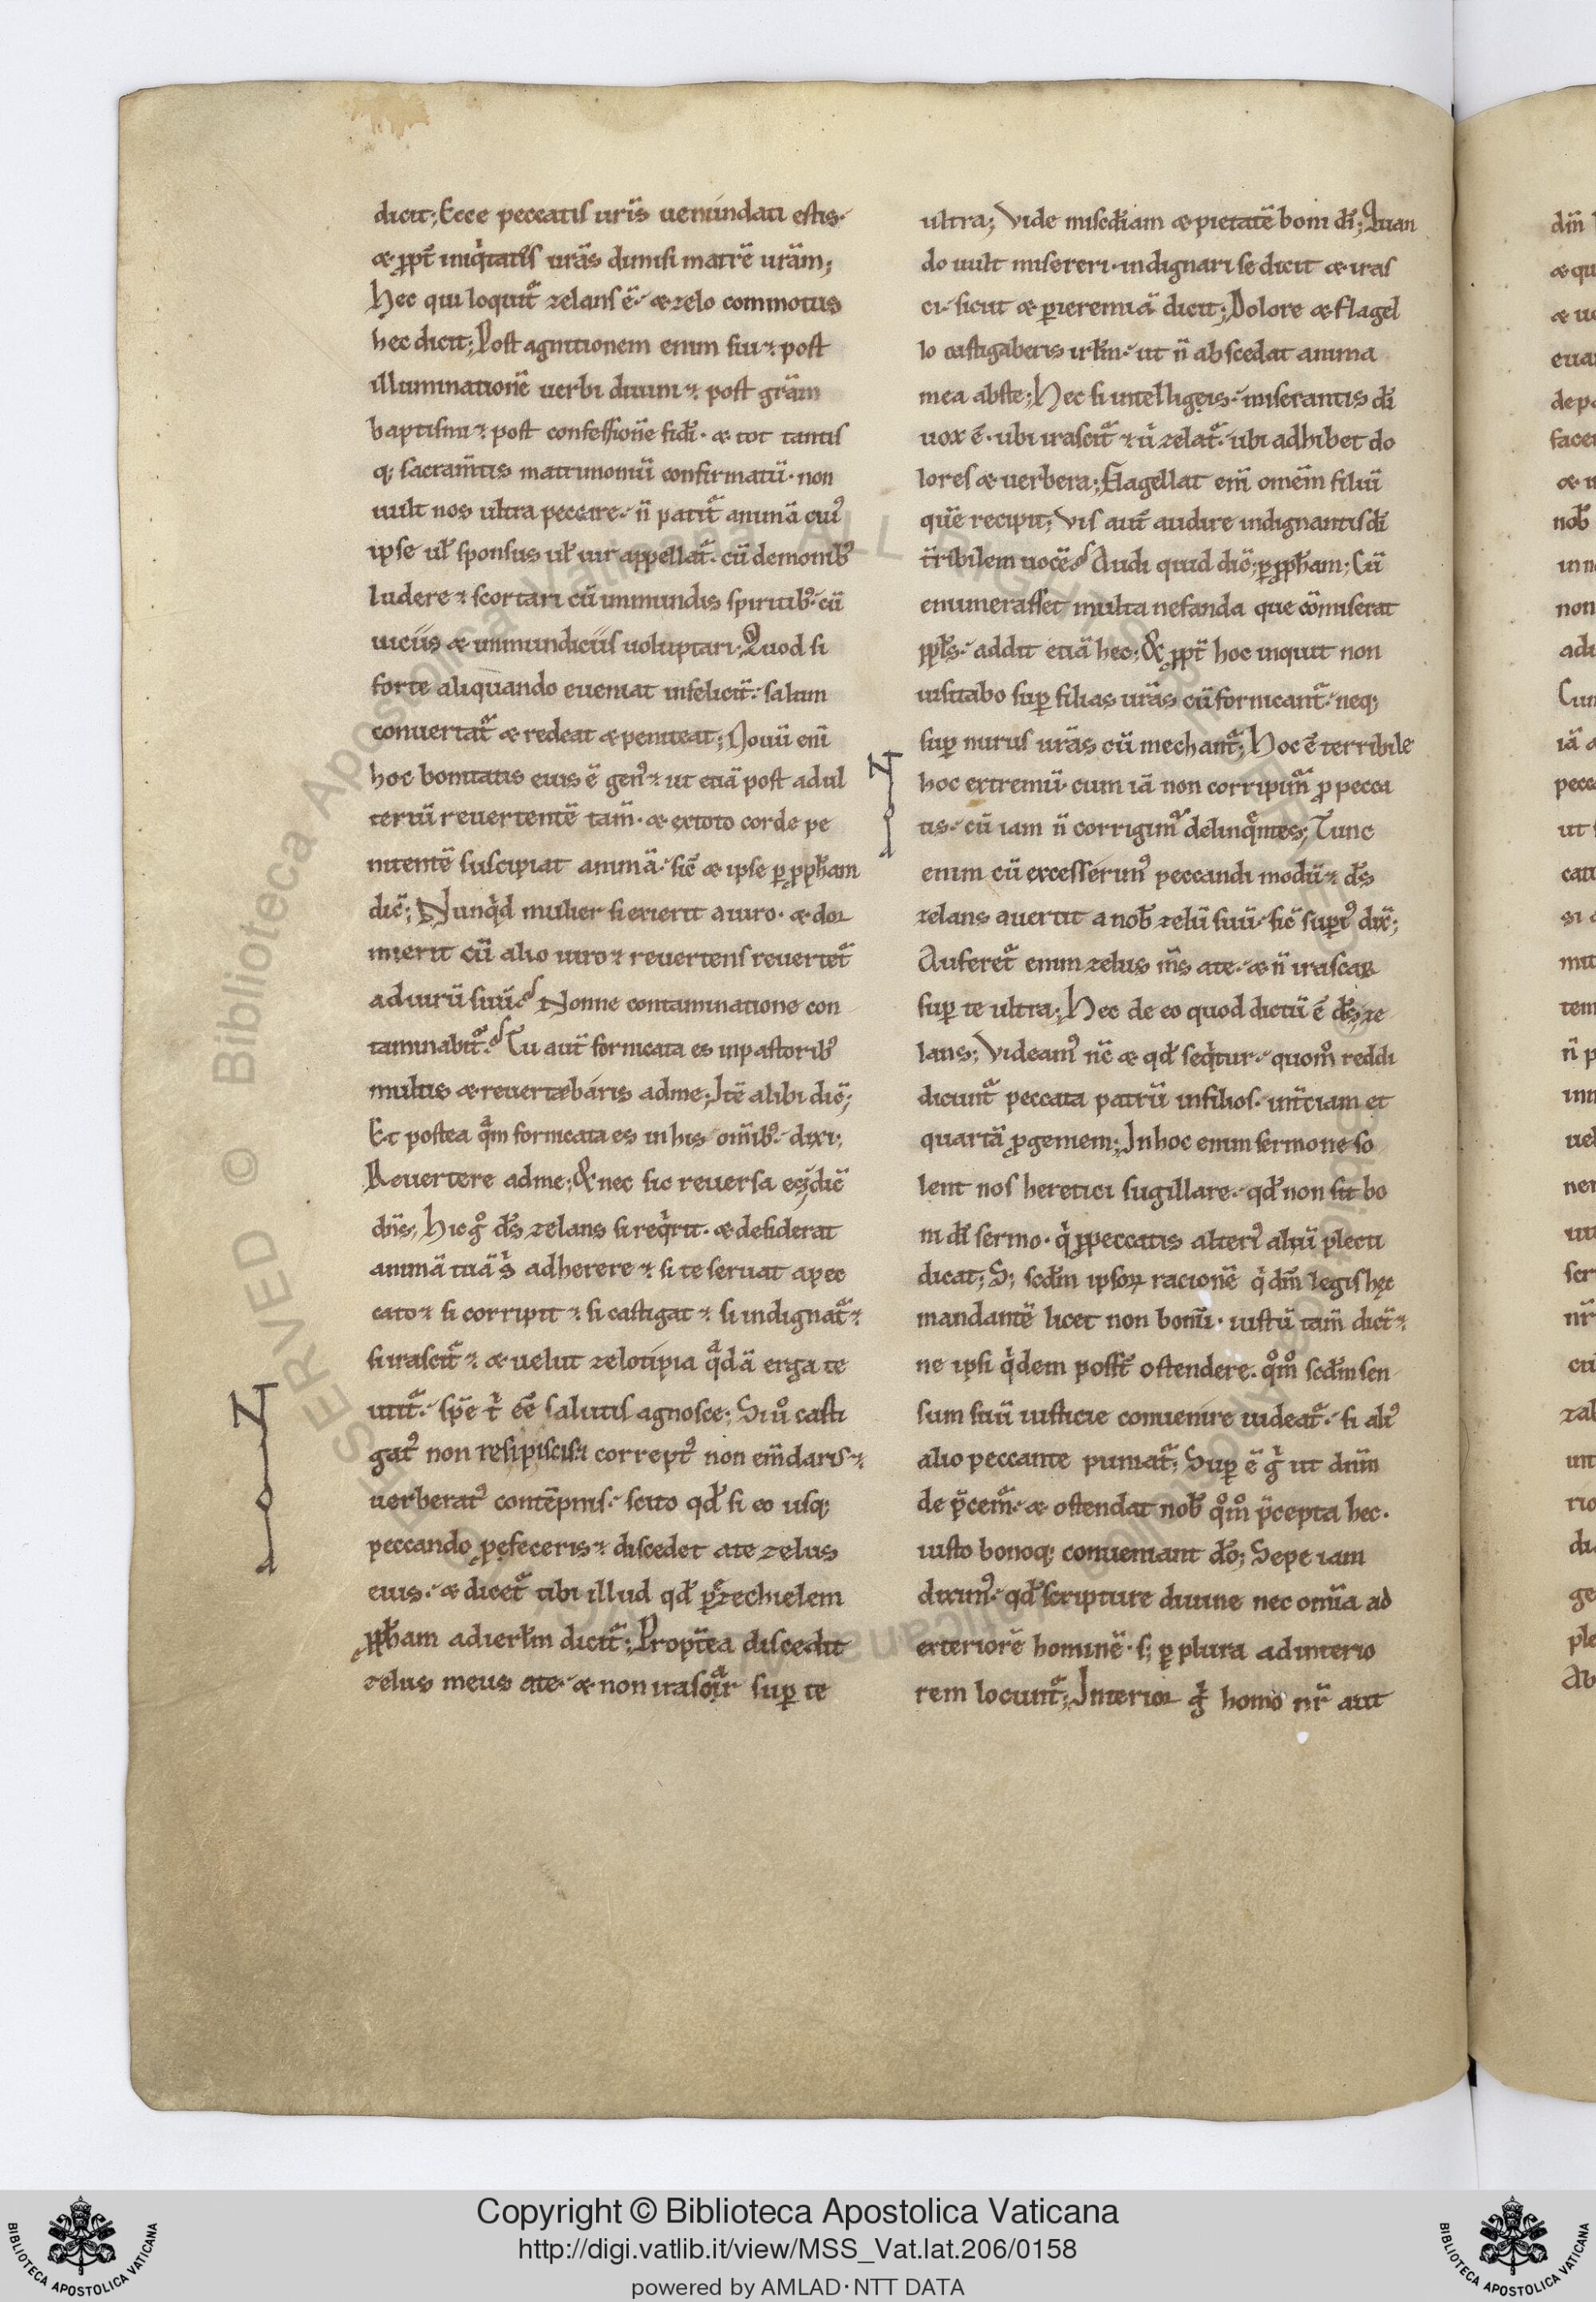 dicit; Ecce peccatis ur̄is uenundati estis·
& ꝓpt̄ iniq̇tates ur̄as dimisi matrē ur̄am;
Hec qui loquit᷑ zelans ē· & zelo commotus
hec dicit; Post agnitionem enim sui· post
illuminationē uerbi diuini· post gr̄am
baptismi· post confessionē fidei· & tot tantis
q; sacram̄tis matrimoniū confirmatū· non
uult nos ultra peccare· n̄ patit᷑ animā cui᷒
ipse uł sponsus uł uir appellat᷑· cū demonib᷒
ludere· scortari cū inmundis spiritib᷒· cū
uiciis & inmundiciis uoluptari· Quod si
forte aliquando eueniat infelicit̄· saltim
conuertat᷑ & redeat & peniteat; Nouū eni̅
hoc bonitatis eius ē gen᷒· ut etiā post adul
teriū reuertentē tam̄· & ex toto corde pe
nitentē suscipiat animā· sic̄ & ipse ꝑ ꝓpħam
dic̄; Nunq̇d mulier si exierit a uiro· & dor
mierit cū alio uiro· reuertens reuertet᷑
ad uirū suū? Nonne contaminatione con
taminabit᷑? Tu aut̄ fornicata es in pastorib᷒
multis & reuertebaris ad me; Itē alibi dic̄;
Et postea q̄m fornicata es in his om̄ib᷒· dixi;
Reuertere ad me; & nec sic reuersa es; dic̄
dn̄s; Hic g̊ ds̄ zelans si req̇rit· & desiderat
animā tuā ṡ adherere· si te seruat a pec
cato· si corripit· si castigat· si indignat᷑·
si irascit᷑· & uelut zelotipia q̄dā erga te
utit᷑· spē t̄ ēē salutis agnosce; Si u̇ casti
gat᷒ non resipiscis· corrept᷒ non em̄daris·
uerberat᷒ contēpnis· scito qđ si eo usq;
peccando ꝓfeceris· discedet a te zelus
eius· & dicet᷑ tibi illud qđ ꝑ Ezechielem
ꝓpħam ad ierłm dicit᷑; Propt̄ea discedit
zelus meus a te· & non irascar sup̱ te
ultra; Vide misedi̅am & pietatē boni di̅; Quan
do uult misereri· indignari se dicit & iras
ci· sicut & ꝑ ieremiā dicit; Dolore & flagel
lo castigaberis irłm· ut n̄ abscedat anima
mea abs te; Hec si intelligeis· miserantis di̅
uox ē· ubi irascit᷑· u̇ zelat᷑· ubi adhibet do
lores & uerbera; Flagellat eni̅ omēm filiū
quē recipit; Vis aut̄ audire indignantis di̅
t̄ribilem uocē? Audi quid dic̄; ꝑ ꝓpħam; Cū
enumerasset multa nefanda que cōmiserat
ppłs· addit etiā hec; & ꝓpt̄ hoc inquit non
uisitabo sup̱ filias ur̄as cū fornicant᷑· neq;
sup̱ nurus ur̄as cū mechant᷑; Hoc ē terribile
hoc extremū· cum iā non corripim᷑ ꝓ pecca
tis· cū iam n̄ corrigim᷑ delinq̄ntes; Tunc
enim cū excesserim᷒ peccandi modū· ds̄
zelans auertit a nob̄ zelū suū· sic̄ superi᷒ dix̄;
Auferet᷑ enim zelus m̄s a te· & n̄ irascar
sup̱ te ultra; Hec de eo quod dictū ē ds̄ ze
lans; Videam᷒ nc̄ & qđ seq̇tur· quom̊ reddi
dicunt᷑ peccata patrū in filios· in t̄ciam et
quartā ꝓgeniem; In hoc enim sermone so
lent nos heretici sugillare· qđ non sit bo
ni di̅ sermo· q̇ ꝓ peccatis alteri᷒ aliū plecti
dicat; S; scđm ipsoꝝ racionē q̇ dm̄ legis hęc
mandantē licet non bonū· iustū tam̄ dict̄·
ne ipsi q̇dem poss̄t ostendere· q̊m̊ scđm sen
sum suū iusticie conuenire uideat᷑· si ali᷒
alio peccante puniat᷑; Sup̱ ē g̊ ut dnm̄
de p̄cem᷑· & ostendat nob̄ q̊m̊ p̄cepta hec·
iusto bonoq; conueniant do̅; Sepe iam
dixim᷒· qđ scripture diuine nec omīa ad
exteriorē hominē· s; ꝑ plura ad interio
rem locunt᷑; Interior g̊ homo nr̄ aut
Copyright © Biblioteca Apostolica Vaticana
http://digi.vatlib.it/view/MSS_Vat.lat.206/0158
powered by AMLAD·NTT DATA